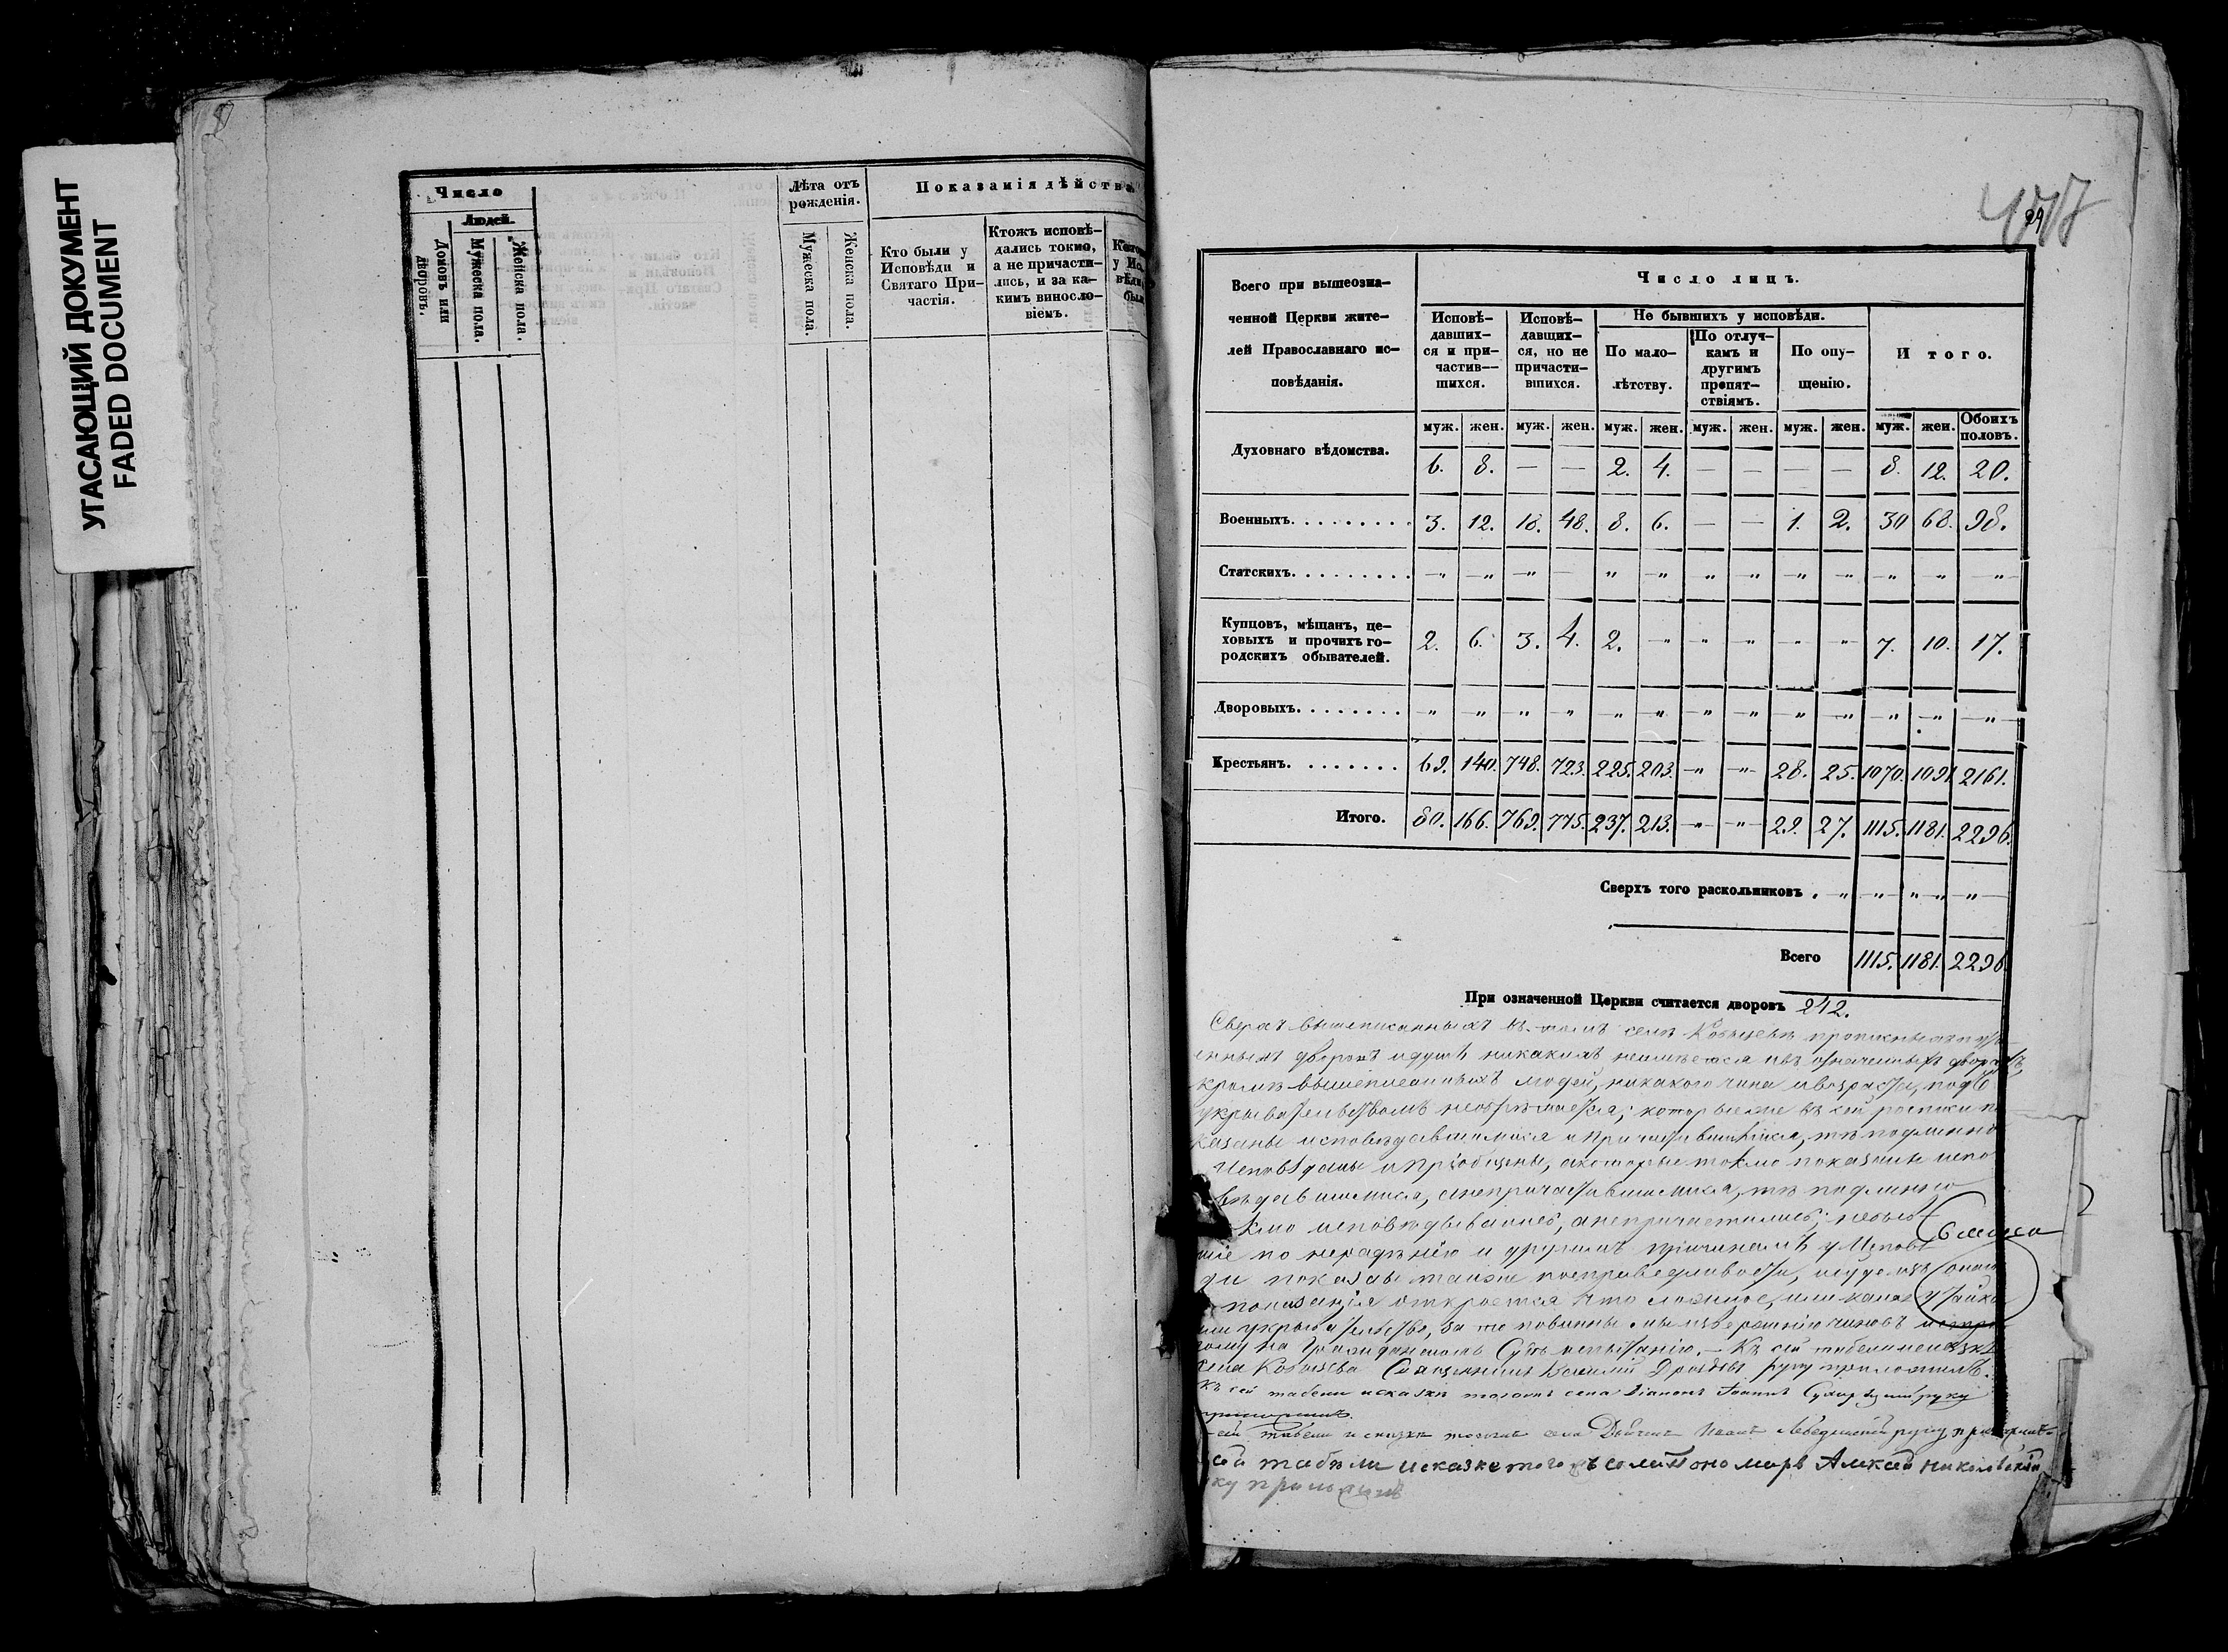 УГАСАЮЩИЙ ДОКУМЕНТ
FADED DOCUMENT
Число
Людей.
Домовъ или дворовъ.
Мужеска пола.
Женска пола.
Лѣта отъ рожденія.
Мужеска пола.
Женска пола.
Показанія дѣйства
Кто были у
Исповѣди и
Святаго При-
частія.
Ктожъ исповѣ-
дались токмо,
а не причасти-
лись, и за ка-
кимъ винослo-
віемъ.
у Ис
вѣди
был
29
Всего при вышеозна-
ченной Церкви жите-
лей Православнаго ис-
повѣданія.
Число лицъ.
Исповѣ-
давших-
ся и при-
частив-
шихся.
Исповѣ-
давших-
ся, но не
причасти-
вшихся.
Не бывшихъ у исповѣди.
По мало-
лѣтству.
По отлуч-
камъ и
другимъ
препят-
ствіямъ.
По опу-
щенію.
Итого.
муж. жен. муж. жен. муж. жен. муж. жен. муж. жен. муж. жен. Обоихъ половъ.
Духовнаго вѣдомства. 6. 8. — — 2. 4. — — — — 8. 12. 20.
Военныхъ. . . . . . . . . 3. 12. 18. 48. 8. 6. — — 1. 2. 30 68. 98.
Статскихъ. . . . . . . . . —„ —„ —„ — „ —„ „ —„ —„ —„ —„ „ —„—
Купцовъ, мѣщанъ, це-
ховыхъ и прочихъ го-
родскихъ обывателей. 2. 6. 3. 4. 2. —„ —„ —„ —„ —„ 7. 10. 17.
Дворовыхъ. . . . . . . . —„ —„ „ —„ —„ —„ —„ —„ —„ —„ —„ —„— —„—
Крестьянъ. . . . . . . . 69. 140. 748. 723. 225. 203. —„ —„— 28. 25. 1070. 1091. 2161.
Итого. 80. 166. 769. 775. 237. 213. —„ —„— 29. 27. 1115. 1181. 2296.
Сверхъ того раскольниковъ . —„ —„— „ —„ —„—
Всего 1115. 1181. 2296
При означенной Церкви считается дворовъ 242.
Сверхъ вышеписанныхъ въ томъ селѣ
дворовъ и душъ никакихъ неимѣется и въ означенныхъ дворахъ,
кромѣ вышеписанныхъ людей, никакого чина и возраста, подъ
укрывательствомъ необрѣтается; которыеже въ сей росписи по
казаны исповѣдавшимися и причастившимися, тѣ подлинно
Исповѣданы и пріобщены, а которые токмо показаны испо
вѣдавшимися, а непричастившимися, тѣ подлинно
кмо исповѣдывались, а непричастились; небыв
шіе по нерадѣнію и другимъ причинамъ у Исповѣ
ди показаны также посправедливости, и
показанія откроется что ложное, или какая утайка
или укрывательство, за то повинны мы изверженію чиновъ
на Гражданскомъ Судѣ истязанію. — Къ сей табели и сказкѣ
села Священникъ Василій руку приложилъ.
Къ сей табели и сказкѣ тогожъ села Діаконъ Іоаннъ руку
приложилъ.
сей табели и сказкѣ тогожъ села Дьячекъ Иванъ руку приложилъ
сей табели и сказке тогожъ села Пономарь Алексей Никольский
ку приложилъ